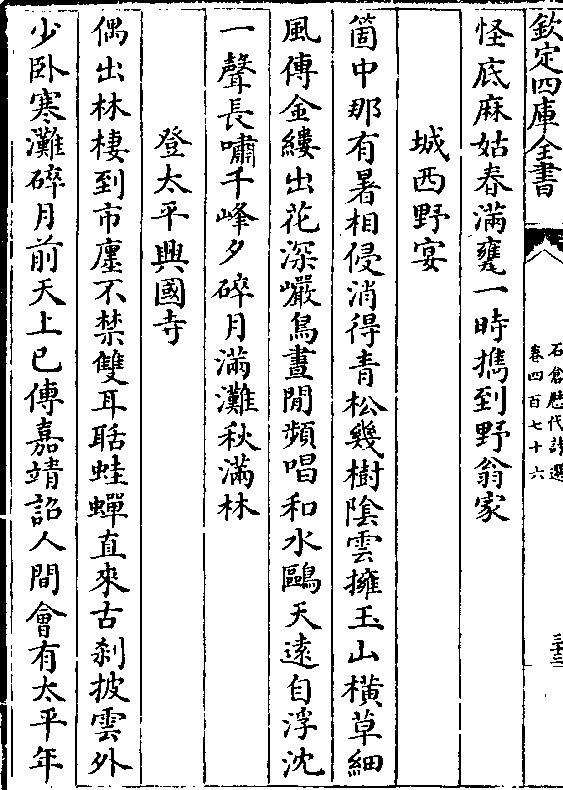 欽定四庫全書
石倉歷代詩選
卷四百七十六
三十三
怪底麻姑春滿甕一時擕到野翁家
城西野宴
箇中那有暑相侵消得青松幾樹陰雲擁玉山橫草細
風傳金縷出花深巖鳥晝閒頻唱和水鷗天遠自浮沈
一聲長嘯千峰夕碎月滿灘秋滿林
登太平興國寺
偶出林棲到市廛不禁雙耳聒蛙蟬直來古刹披雲外
少卧寒灘碎月前天上已傳嘉靖詔人間會有太平年